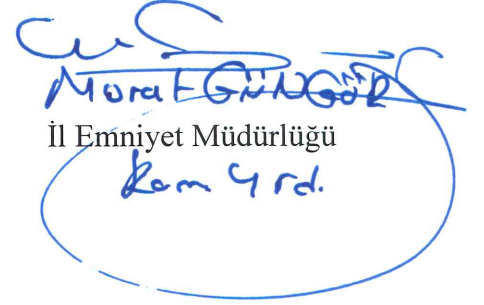 Murat GÜNGÖR
İl Emniyet Müdürlüğü
Kom. Yrd.